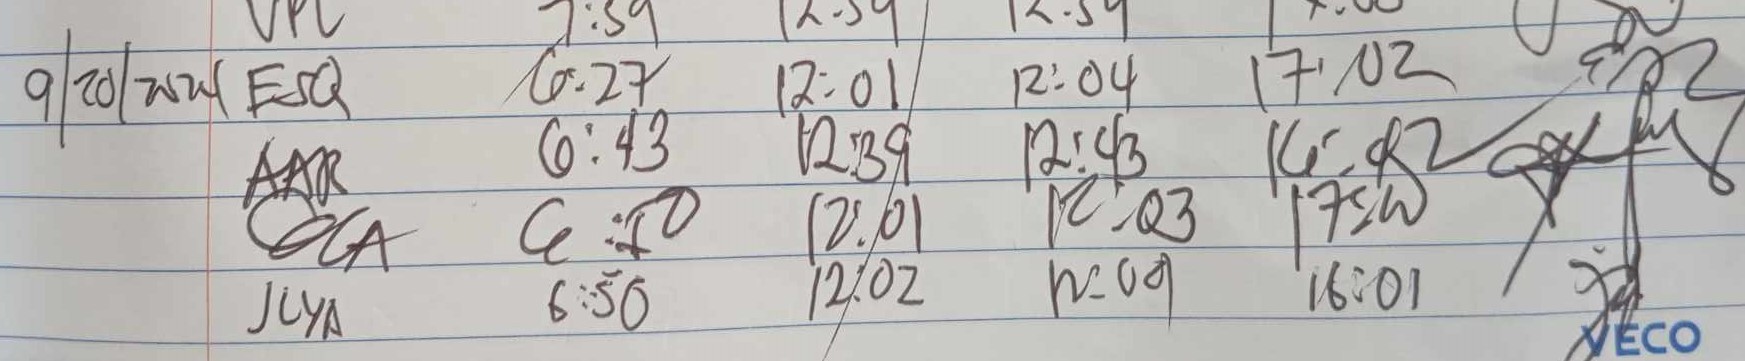 VPL 7:59 12:59 12:59
9/20/2024 ESQ 6:27 12:01 12:04 17:02
AAR 6:43 12:39 12:43
6:50 12:01 12:03
JLYA 6:50 12:02 12:09 16:01
VECO